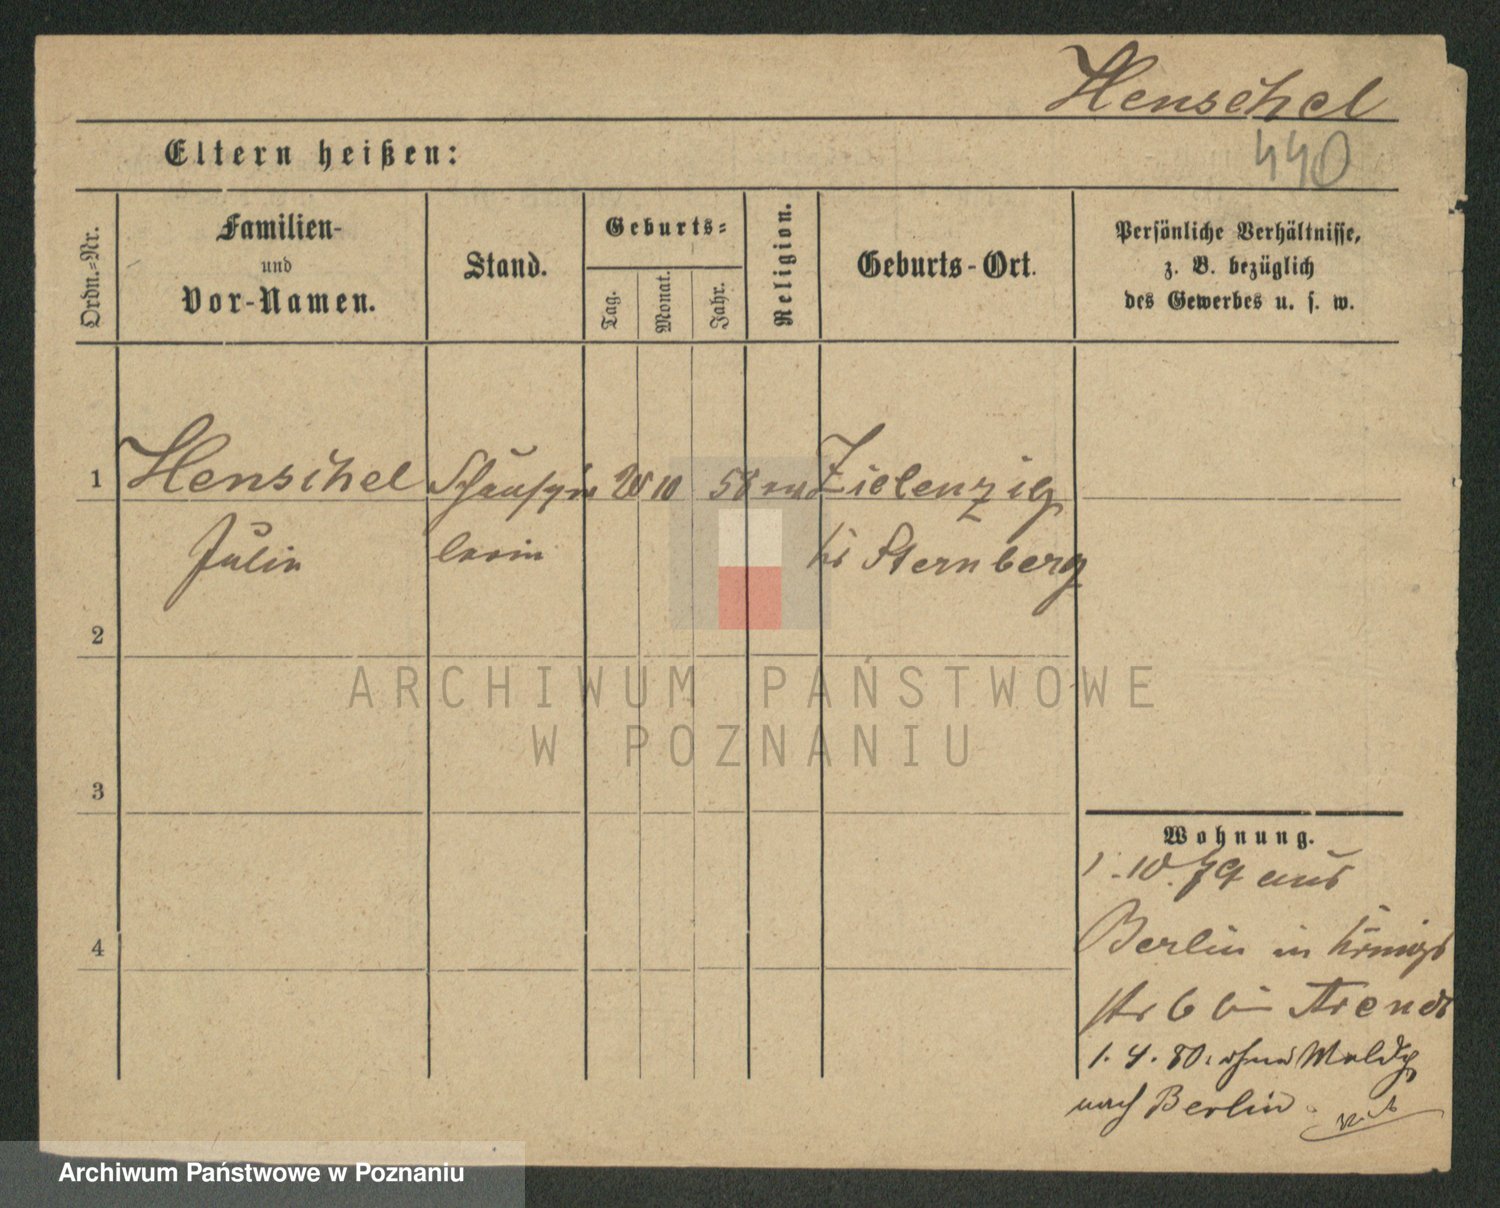 Henschel
440
Eltern heißen:
Ordn.-Nr.
Familien-
und
Vor-Namen.
Stand.
Geburts-
Tag.
Monat.
Jahr.
Religion.
Geburts-Ort.
Persönliche Verhältnisse,
z. B. bezüglich
des Gewerbes u. s. w.
1 Henschel Schauspie 10 58 Zielenzig
Julie lerin Sternberg
2
3
4
Wohnung.
1.10.79 aus
Berlin in Königs
str 6 bei Arendt
1.4.80. ohne Meldg
nach Berlin.
ARCHIWUM PAŃSTWOWE
W POZNANIU
Archiwum Państwowe w Poznaniu